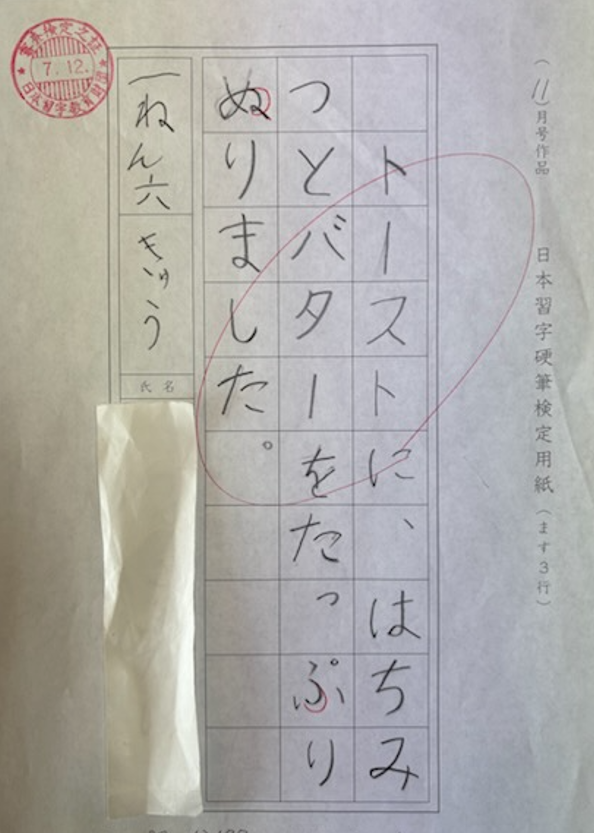 (11)月号作品 日本習字硬筆検定用紙(ます3行)
トーストに、はちみ
つとバターをたっぷり
ぬりました。
一ねん六きゅう
氏名
7.12.
日本習字教育財団